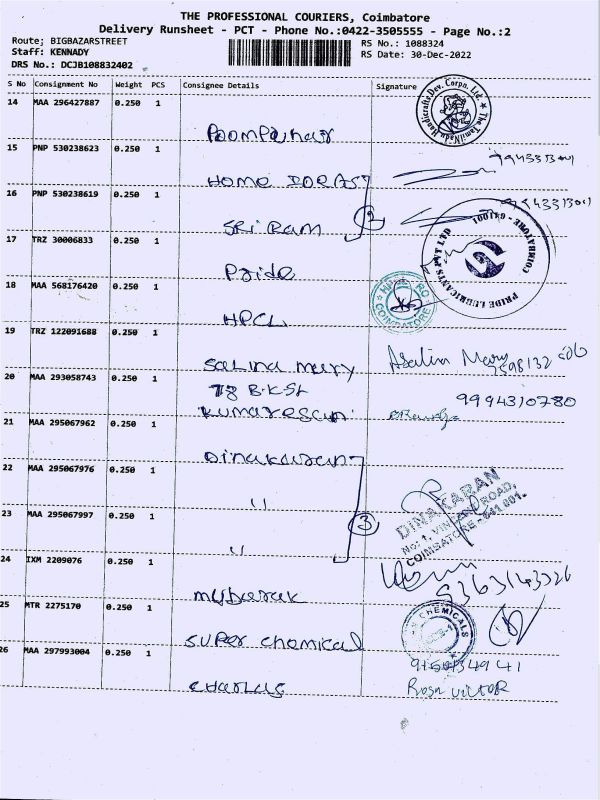 THE PROFESSIONAL COURIERS, Coimbatore
Delivery Runsheet - PCT - Phone No.:0422-3505555 - Page No.:2
Route; BIGBAZARSTREET
Staff: KENNADY
DRS No.: DCJB108832402
RS No.: 1088324
RS Date: 30-Dec-2022
S No Consignment No Weight PCS Consignee Details Signature
14 MAA 296427887 0.250 1
Poompuhar
15 PNP 530238623 0.250 1
16 PNP 530238619 0.250 1
SRi RAM
17 TRZ 30006833 0.250 1
Pride
PRIDE LUBRICANTS PVT LTD
COIMBATORE - 641001
18 MAA 568176420 0.250 1
HPCL
COIMBATORE
19 TRZ 122091688 0.250 1
Salina mary
20 MAA 293058743 0.250 1
78 B.K.St
Kumaresan
9994310780
21 MAA 295067962 0.250 1
Dinakaran
22 MAA 295067976 0.250 1
"
23 MAA 295067997 0.250 1
"
3
DINAKARAN
COIMBATORE - 641 001.
24 IXM 2209076 0.250 1
mubarak
9363143326
25 MTR 2275170 0.250 1
SUPER chemical
CHEMICALS
26 MAA 297993004 0.250 1
CHARLAS
Rosn VICTOR